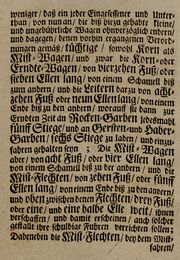 weniger / daß ein jeder Eingesessener und Unter-
than / von nun an / die biß hiezu gehabte kleine /
und ungebührliche Wagen ohnverzüglich endern /
und dagegen / denen vorhin ergangenen Verord-
nungen gemäß / tüchtige / sowohl Korn als
Mist-Wagen / und zwar die Korn- oder
Erndte-Wagen / von vierzehen Fuß / oder
sieben Ellen lang / von einem Schamell biß
zum andern / und die Leitern darzu von acht-
zehen Fuß oder neun Ellen lang / von einem
Ende biß zu den andern / worauf sie dann zur
Erndten Zeit an Rocken-Garben jedesmahl
fünf Stiege / und an Gersten- und Haber-
Garben / sechs Stiege zu laden / und einzu-
fahren gehalten seyn ; Die Mist-Wagen
aber / von acht Fuß / oder vier Ellen lang /
von einem Schamell biß zu der andern / und die
Mist-Flechten / von zehen Fuß / oder fünf
Ellen lang / von einem Ende biß zu den andern /
und oben zwischen denen Flechten / drey Fuß /
oder eine / und eine halbe Elle weit / ihnen
verschaffen / und damit erscheinen / auch solcher
gestalt ihre schuldige Fuhren verrichten sollen ;
Dabeneben die Mist-Flechten / bey dem Mist-
fahren /